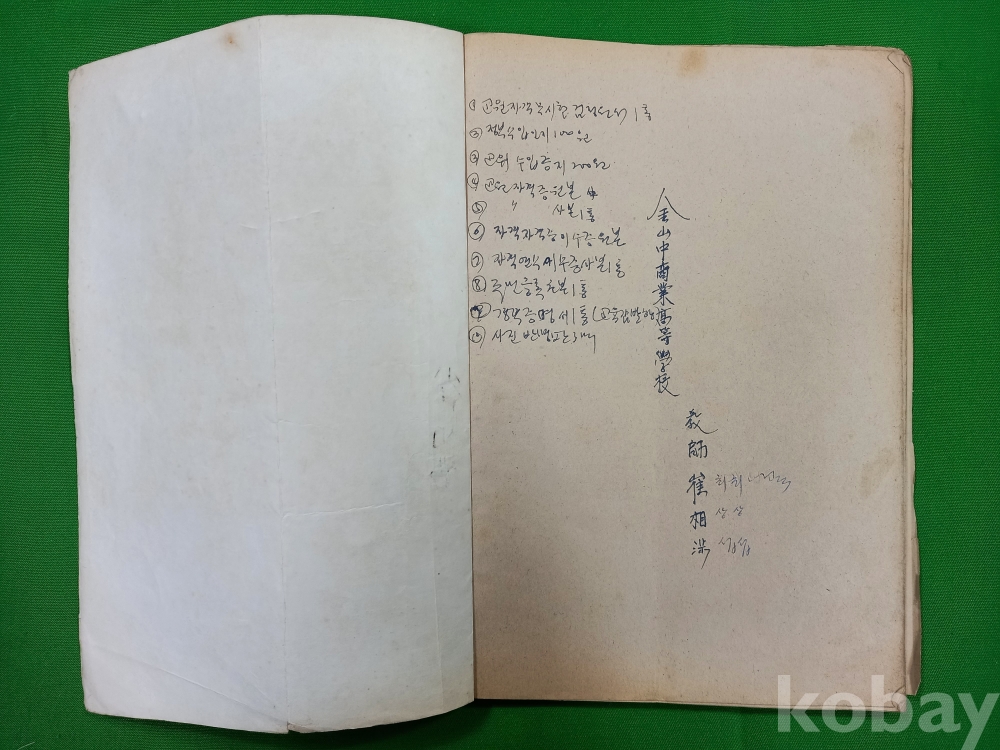 ① 교원자격무시험검정원서 1통
② 정부수입인지 100원
③ 교위 수입증지 200원
④ 교원자격증원본
⑤ 〃 사본 1통
⑥ 자격증 이수증 원본
⑦ 사본 1통
⑧ 주민등록초본 1통
증명서 1통 (교육감발행)
⑩ 사진 반명함판 3매
金山中商業高等學校
敎師 崔相涉
최 최
상 상
섭 섭
kobay